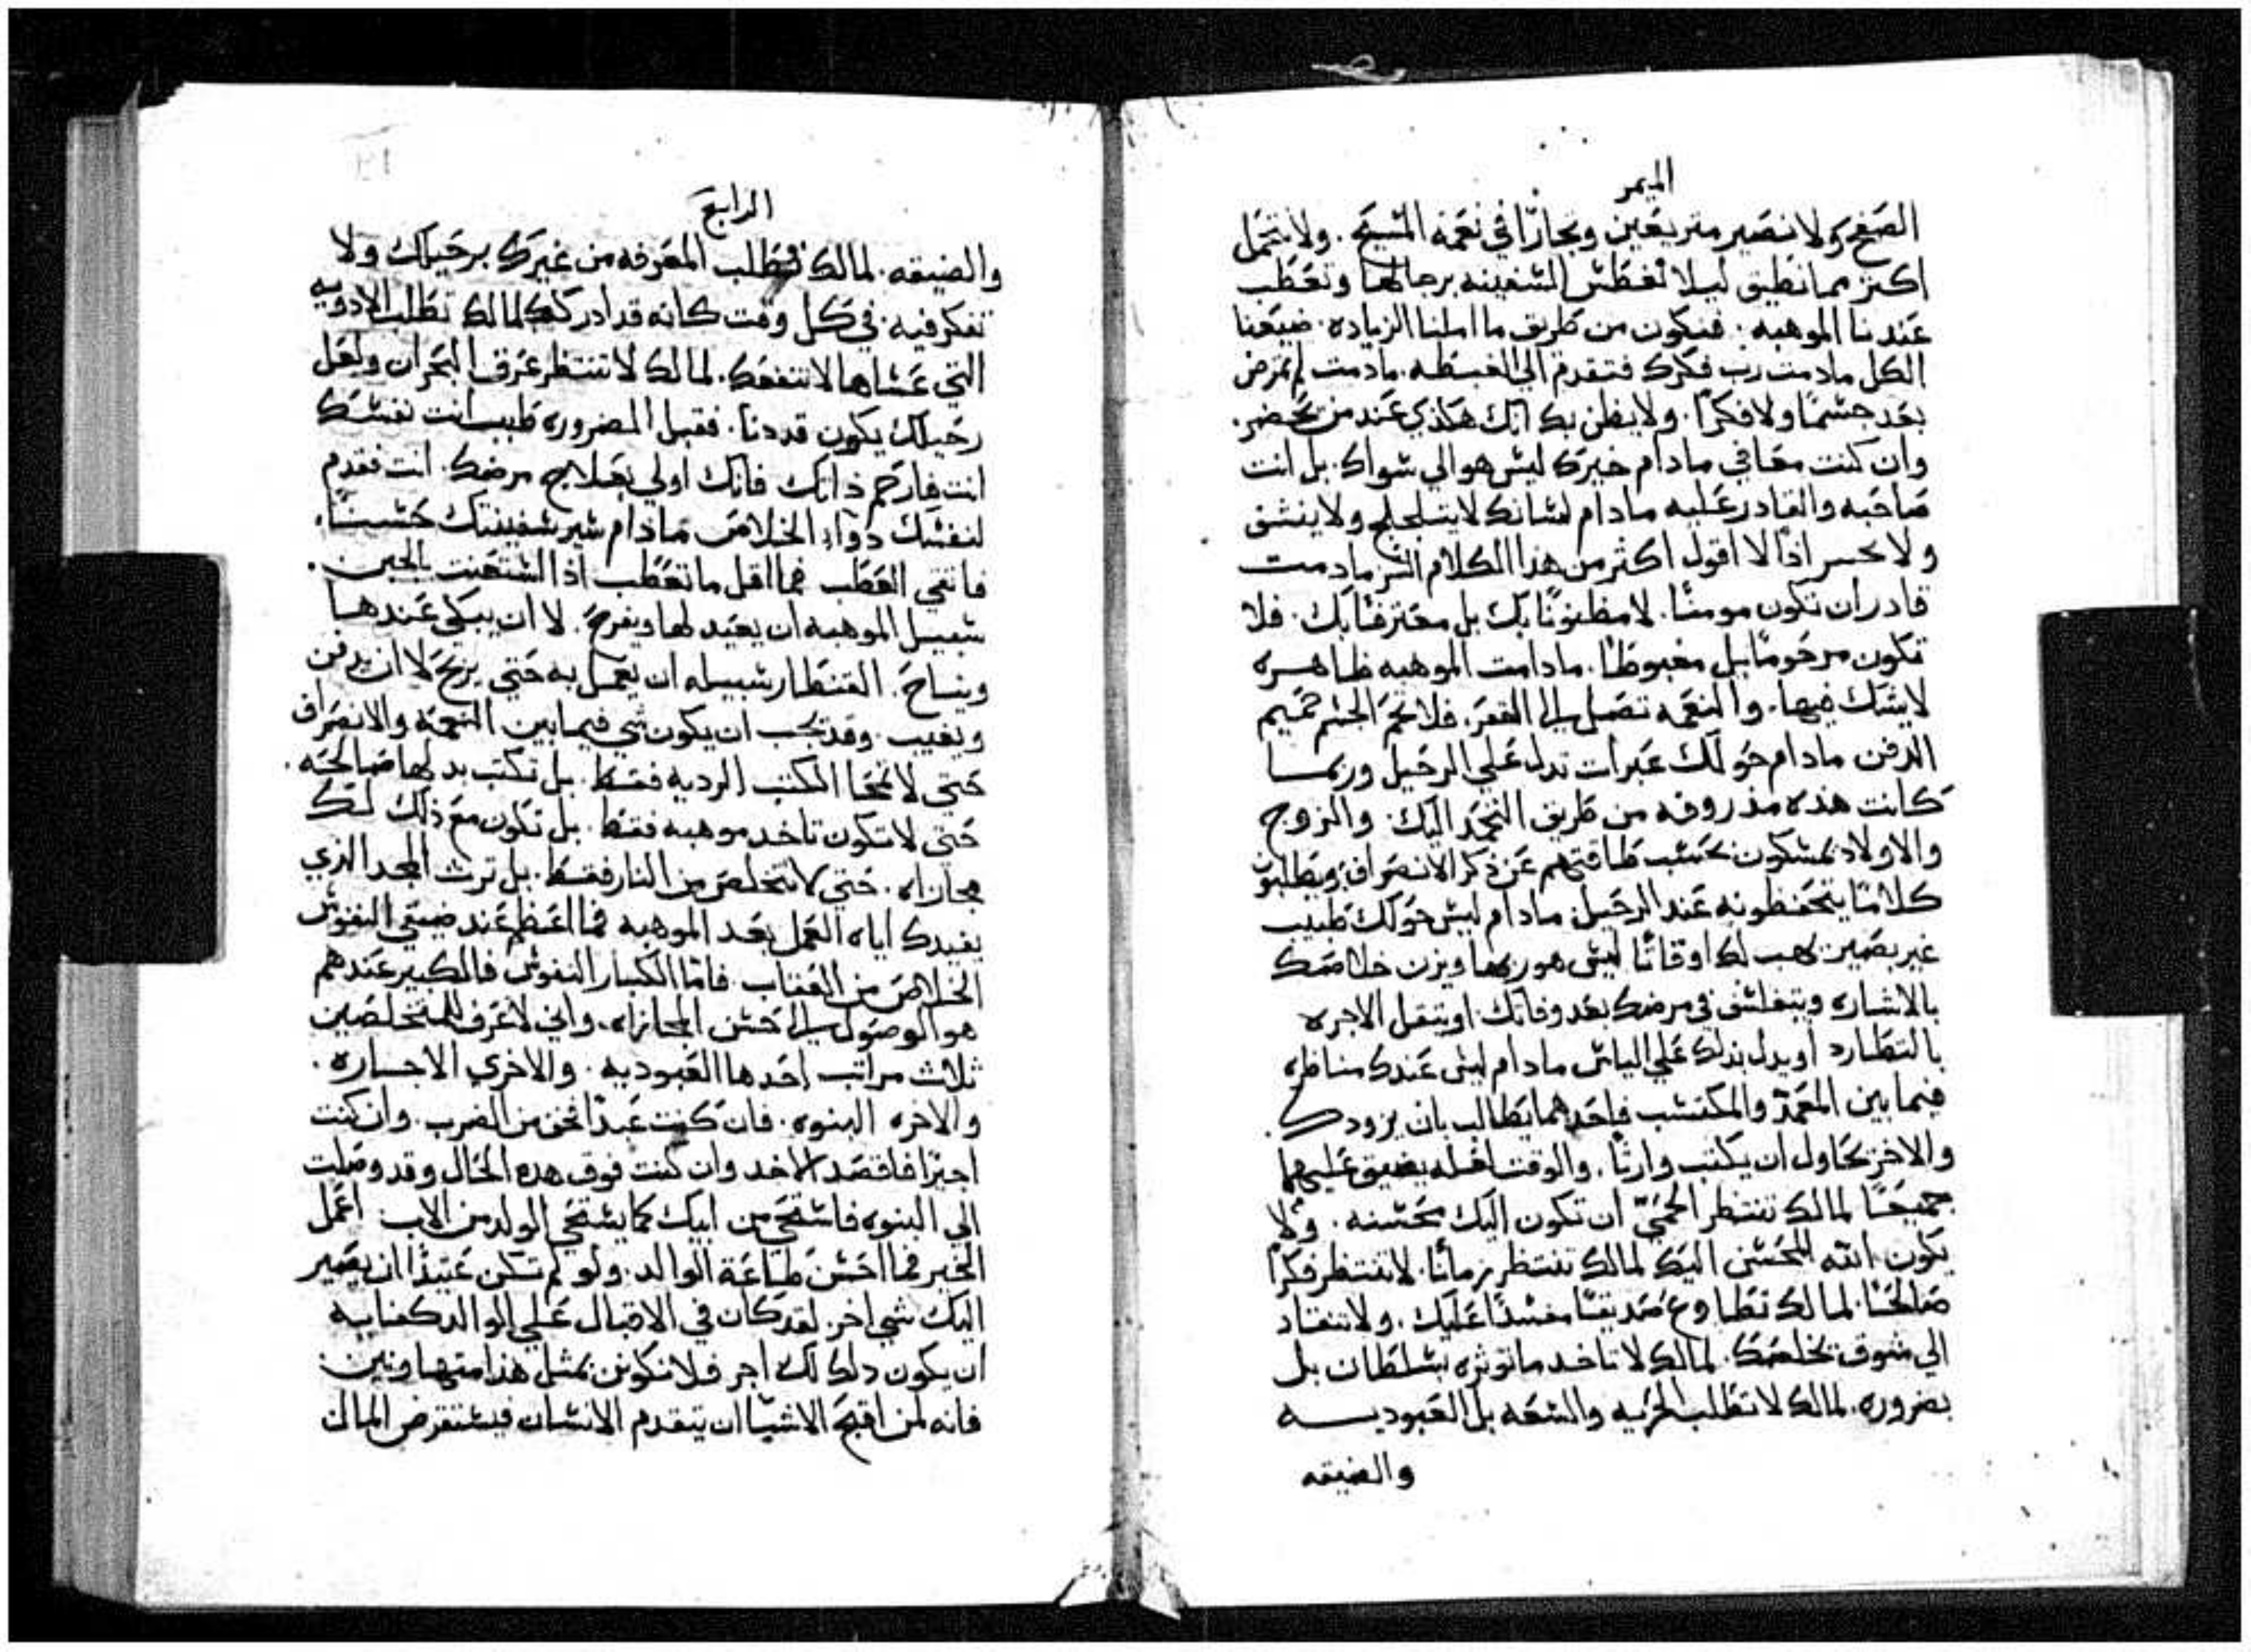 الميمر
الصفح ولا نصير متربعين وتجارًا في نعمة المسيح. ولا نتحمل
اكتر مما نطيق ليلا تغطس السفينه برجالها وتعطب
عندنا الموهبه. فنكون من طريق ما املنا الزياده ضيعنا
الكل مادمت رب فكرك فتقدم الي الغبطه. مادمت لم تمرض
بعد جسمًا ولا فكرًا. ولا يظن بك انك هكذي عند من يحضر.
وان كنت معافي مادام خيرك ليس هو الي سواك بل انت
صاحبه والقادر عليه مادام لسانك لا يتلجلج ولا ينشق
ولا يخسر اذًا لا اقول اكثر من هذا الكلام السر مادمت
قادر ان تكون مومنًا. لا مظنونًا بك بل معترفًا بك. فلا
تكون مرحومًا بل مغبوطًا. مادامت الموهبه ظاهره
لا يشك فيها. والنعمه تصل الي القعر. فلا تحم الجسم حميم
الدفن مادام حولك عبرات تدل علي الرحيل وربما
كانت هذه مذروفه من طريق التحمد اليك. والزوج
والاولاد يمسكون بحسب طاقتهم عن ذكر الانصراف ويطلبون
كلامًا يتحفظونه عند الرحيل مادام ليس حولك طبيب
غير بصير يهب لك اوقاتًا ليس هو ربها ويزن خلاصك
بالاشاره ويتفلسف في مرضك بعد وفاتك. او يتنقل الاجره
بالتطارد او يدل بذلك علي الياس مادام ليس عندك مناظره
فيما بين المعمد والمكتسب فاحدهما يطالب بان يزودك
والاخر يحاول ان يكتب وارثًا. والوقت افله يضيق عليهما
جميعًا لمالك تنتظر الحمي ان تكون اليك محسنه. ولا
يكون الله المحسن اليك لمالك تنتظر زمانًا. لا تنتظر فكرًا
صالحًا. لمالك تطاوع صديقًا مفسدًا عليك. ولا تنقاد
الي شوق يخلصك. لمالك لا تاخد ما توثره بسلطان بل
بضروره. لمالك لا تطلب الحريه والسعه بل العبوديه
والضيقه
الرابع
والضيقه. لمالك تطلب المعرفه من غيرك برحيلك ولا
تفكر فيه. في كل وقت كانه قد ادركك لمالك تطلب الادويه
التي عساها لا تنفعك. لمالك لا تنتظر عرق البحران ولعل
رحيلك يكون قد دنا. فقبل الضروره طبب انت نفسك
انت فارحم ذاتك فانك اولي بعلاج مرضك. انت فقدم
لنفسك دواء الخلاص مادام سير سفينتك حسنًا.
فاتقي العطب فما اقل ما تعطب اذا استعنت بالجبن.
سبيل الموهبه ان يعيد لها ويفرح. لا ان يبكي عندها
ويناح. القنطار سبيله ان يعمل به حتي يربح لا ان يدفن
ويغيب. وقد يجب ان يكون شي فيما بين النعمه والانصراف
حتي لا تمحا الكتب الرديه فقط. بل تكتب بدلها صالحه.
حتي لا تكون تاخد موهبه فقط. بل تكون مع ذلك لك
مجازاه. حتي لا تتخلص من النار فقط. بل ترث المجد الذي
يفيدك اياه العمل بعد الموهبه فما اعظم عند ضيقي النفوس
الخلاص من العقاب. فاما الكبار النفوس فالكبير عندهم
هو الوصول الي احسن المجازاه. واني لاعرف للمتخلصين
ثلاث مراتب احدها العبوديه. والاخري الاجساره.
والاخره البنوه. فان كنت عبدًا فخف من الضرب. وان كنت
اجيرًا فاقصد الاخد وان كنت فوق هده الحال وقد وصلت
الي البنوه فاستحي من ابيك كما يستحي الولد من الاب اعمل
الخير فما احسن طاعة الوالد. ولو لم تكن عتيدًا ان يصير
اليك شي اخر. لقد كان في الاقبال علي الوالد كفايه
ان يكون دلك لك اجر فلا نكونن بمثل هذا متهاونين
فانه لمن اقبح الاشيا ان يتقدم الانسان فيستقرض المال